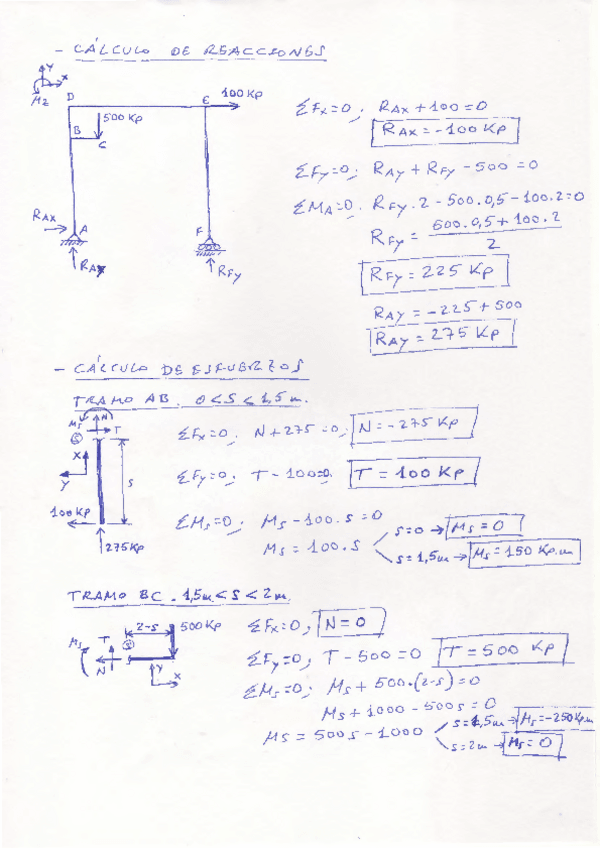 - CÁLCULO DE REACCIONES
Y
X
Mz
D
E
100 Kp
500 Kp
B
C
RAX
A
RAY
F
RFY
ΣFx=0; RAX + 100 = 0
RAX = -100 Kp
ΣFy=0; RAY + RFY - 500 = 0
ΣMA=0. RFY · 2 - 500·0,5 - 100·2 = 0
RFY = 500·0,5 + 100·2 / 2
RFY = 225 Kp
RAY = -225 + 500
RAY = 275 Kp
- CÁLCULO DE ESFUERZOS
TRAMO AB. 0 < S < 1,5 m.
Ms
N
T
G
X
Y
S
100 Kp
275 Kp
ΣFx=0; N + 275 = 0; N = -275 Kp
ΣFy=0; T - 100 = 0. T = 100 Kp
ΣMs=0; Ms - 100·s = 0
Ms = 100·s
s=0 → Ms = 0
s=1,5m → Ms = 150 Kp.m
TRAMO BC. 1,5m < S < 2m.
2-s
500 Kp
Ms
T
G
N
Y
X
ΣFx=0; N = 0
ΣFy=0; T - 500 = 0 T = 500 Kp
ΣMs=0; Ms + 500·(2-s) = 0
Ms + 1000 - 500s = 0
Ms = 500s - 1000
s=1,5m → Ms = -250 Kp.m
s=2m → Ms = 0